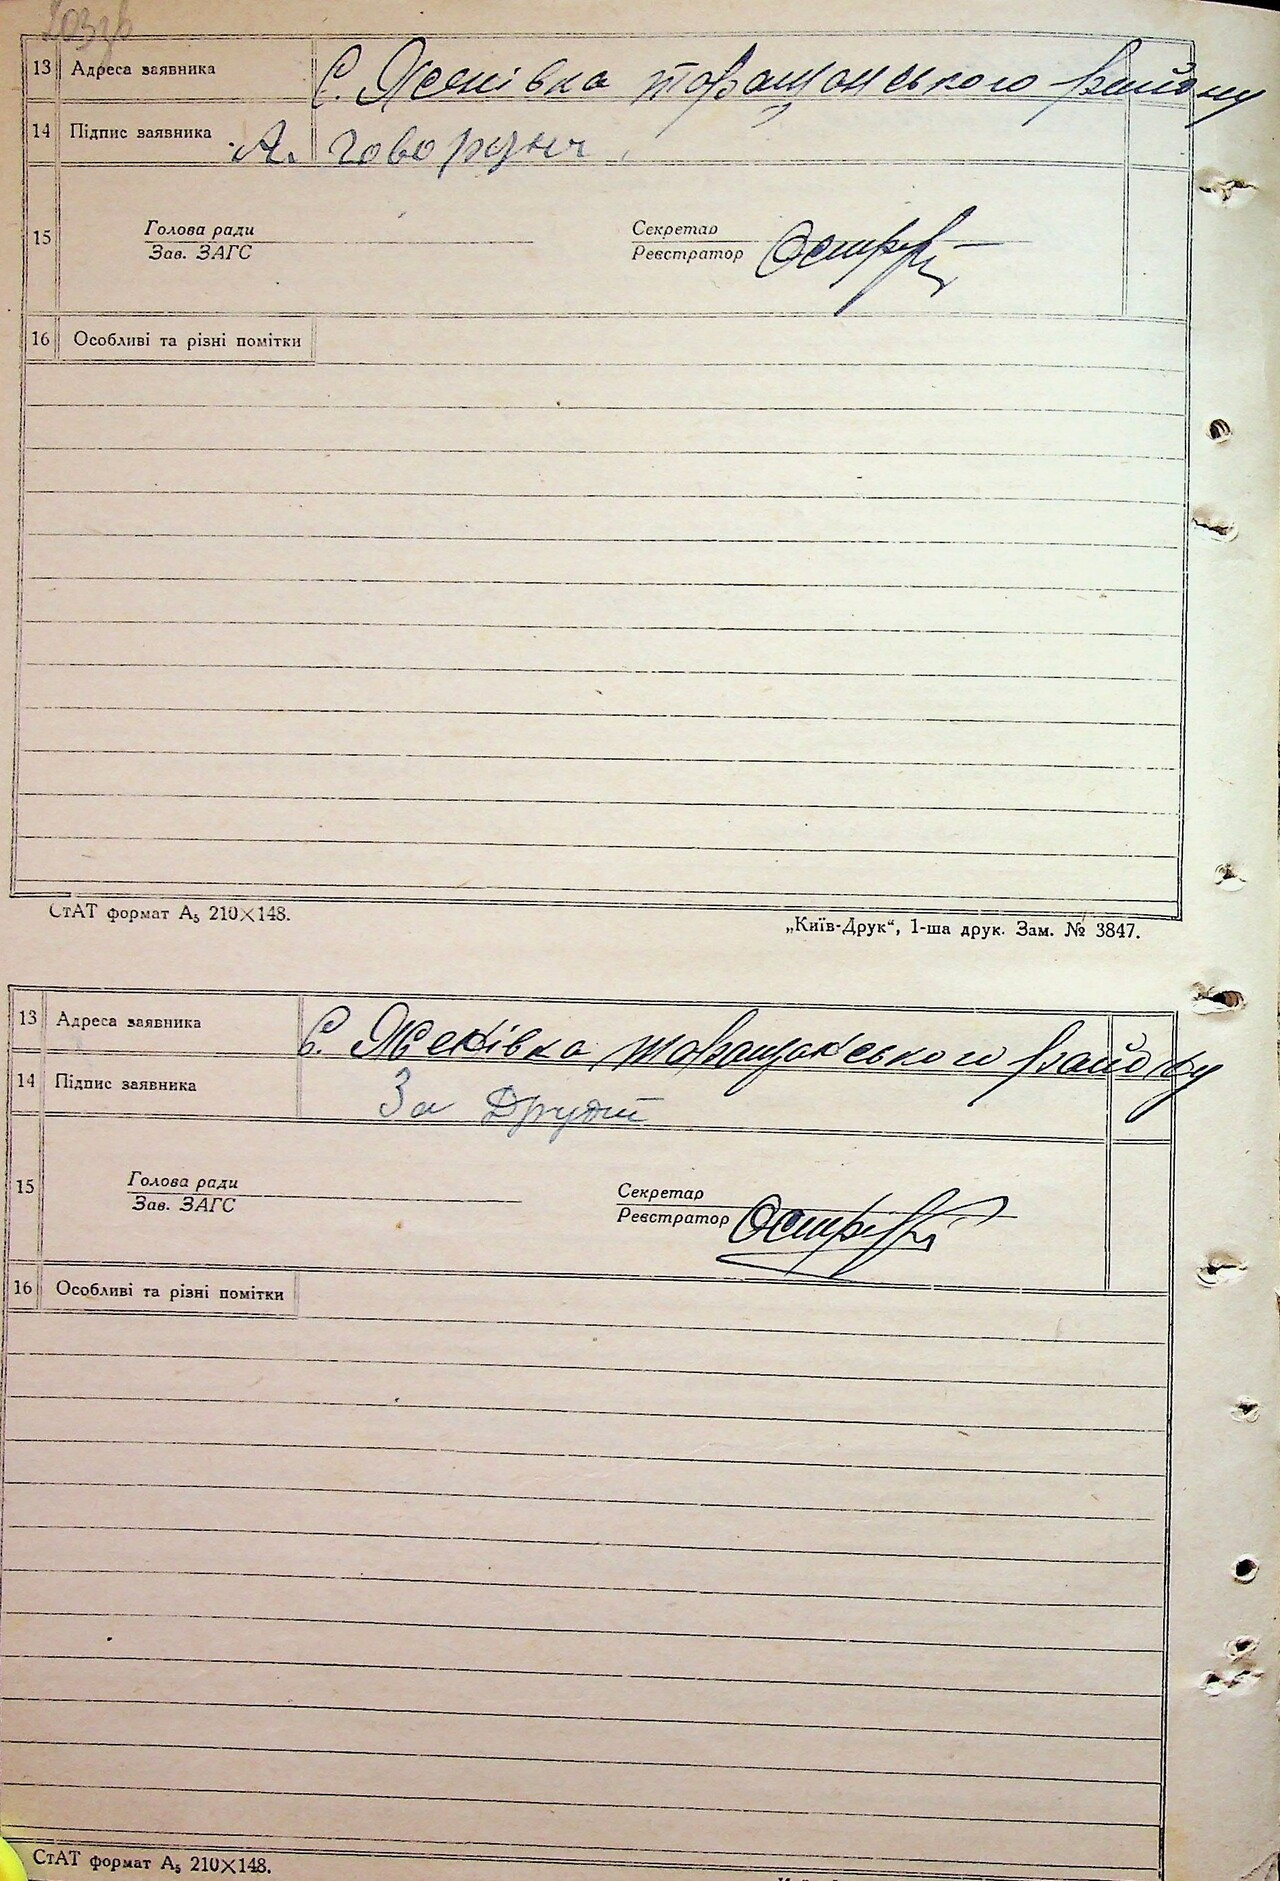 203зв
13 Адреса заявника С. Лсенівка таращанського району
14 Підпис заявника А. Говорун
Голова ради Секретар
15
Зав. ЗАГС Реєстратор
16 Особливі та різні помітки
СтАТ формат А5 210×148.
„Київ-Друк“, 1-ша друк. Зам. № 3847.
13 Адреса заявника С. Лсенівка таращанського району
14 Підпис заявника За
Голова ради Секретар
15
Зав. ЗАГС Реєстратор
16 Особливі та різні помітки
СтАТ формат А5 210×148.